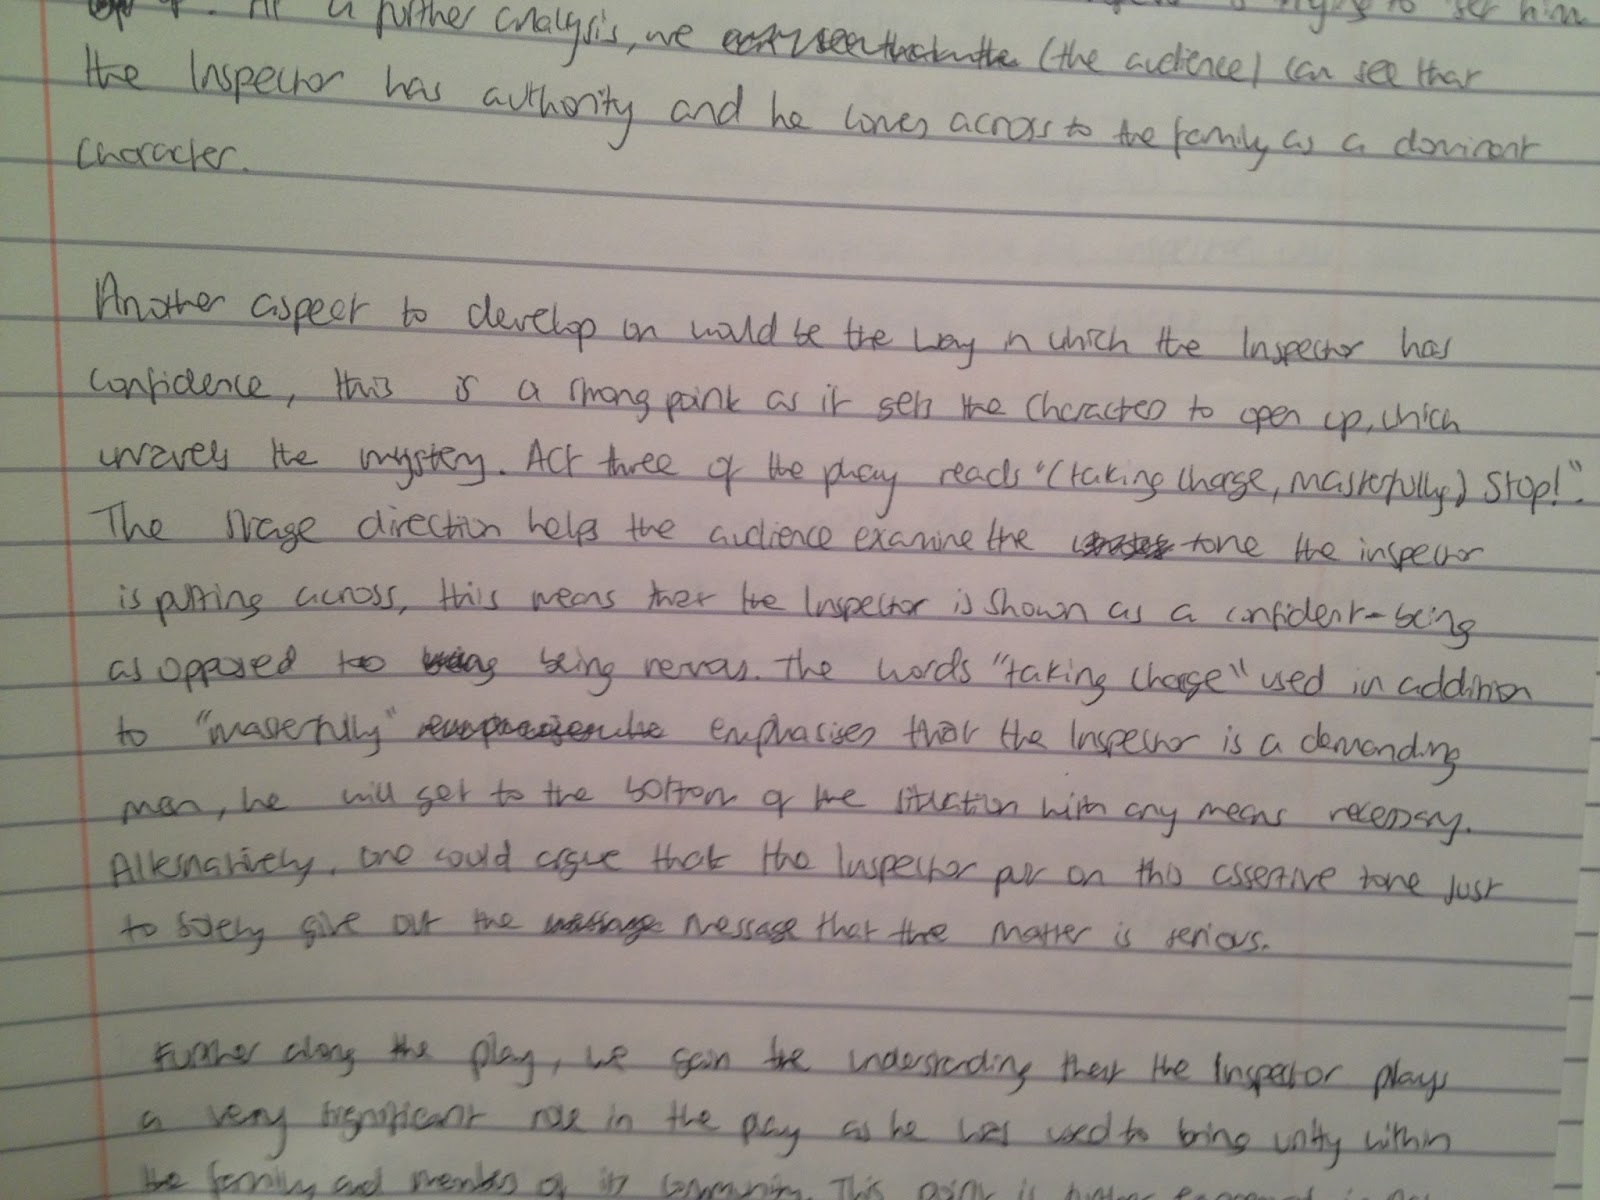 At a further analysis, we (the audience) can see that
the Inspector has authority and he comes across to the family as a dominant
character.
Another aspect to develop on would be the way in which the Inspector has
confidence, this is a strong point as it gets the characters to open up, which
unravels the mystery. Act three of the play reads "(taking charge, masterfully) Stop!".
The stage direction helps the audience examine the tone the inspector
is putting across, this means that the Inspector is shown as a confident-being
as opposed to being nervous. The words "taking charge" used in addition
to "masterfully" emphasises that the Inspector is a demanding
man, he will get to the bottom of the situation with any means necessary.
Alternatively, one could argue that the Inspector put on this assertive tone just
to solely give out the message that the matter is serious.
Further along the play, we gain the understanding that the Inspector plays
a very significant role in the play as he was used to bring unity within
the family and members of its community. This point is